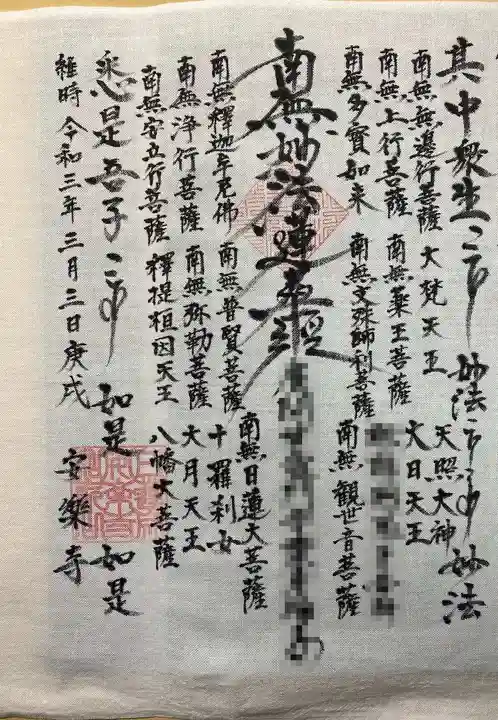 其中衆生
妙法
妙法
南無無邊行菩薩
大梵天王
天照大神
南無上行菩薩
南無薬王菩薩
大日天王
南無多寳如来
南無文殊師利菩薩
南無観世音菩薩
南無妙法蓮華經
南無釋迦牟尼佛
南無普賢菩薩
南無日蓮大菩薩
南無浄行菩薩
南無弥勒菩薩
十羅刹女
南無安立行菩薩
釋提桓因天王
大月天王
八幡大菩薩
悉是吾子
如是
如是
維時令和三年三月三日庚戌
安樂寺